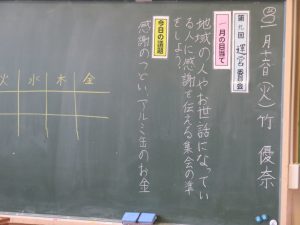 一月十六日(火)竹 優奈
第九回 運営委員会
一月の目当て
地域の人やお世話になってい
る人に感謝を伝える集会の準
備をしよう。
今日の議題
感謝のつどい、アルミ缶のお金
火 水 木 金